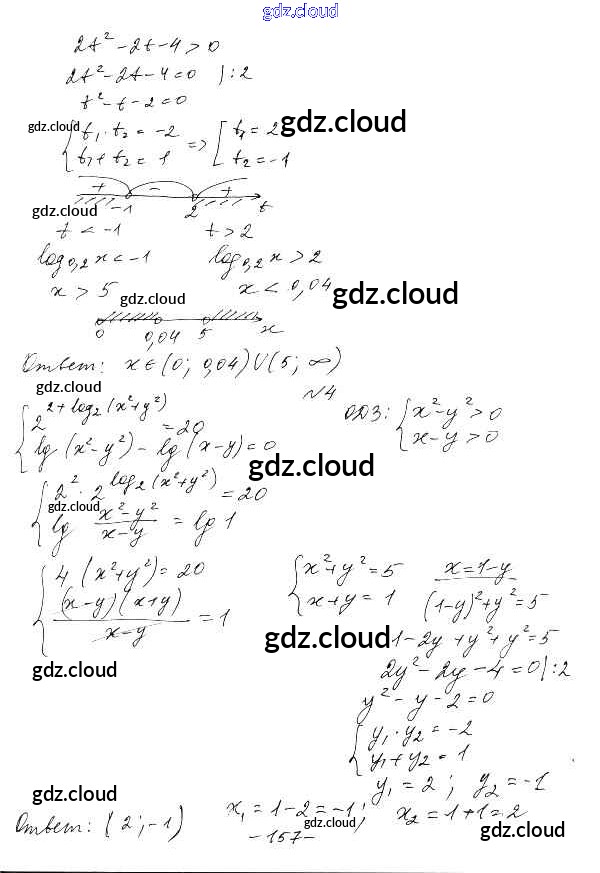 gdz.cloud
2t² - 2t - 4 > 0
2t² - 2t - 4 = 0 | : 2
t² - t - 2 = 0
gdz.cloud { t₁ · t₂ = -2 => [ t₁ = 2 gdz.cloud
t₁ + t₂ = 1 t₂ = -1
+ - +
gdz.cloud -1 2 t
t < -1 t > 2
log₀,₂ x < -1 log₀,₂ x > 2
x > 5 gdz.cloud x < 0,04 gdz.cloud
0 0,04 5 x
Ответ: x ∈ (0; 0,04) ∪ (5; ∞)
gdz.cloud №4
{ 2^(2 + log₂(x² + y²)) = 20 ОДЗ: { x² - y² > 0
lg(x² - y²) - lg(x - y) = 0 x - y > 0
gdz.cloud
{ 2² · 2^(log₂(x² + y²)) = 20
gdz.cloud
lg (x² - y²)/(x - y) = lg 1
{ 4(x² + y²) = 20 { x² + y² = 5 x = 1 - y
(x - y)(x + y)/(x - y) = 1 x + y = 1 (1 - y)² + y² = 5
gdz.cloud 1 - 2y + y² + y² = 5
gdz.cloud 2y² - 2y - 4 = 0 | : 2
y² - y - 2 = 0
{ y₁ · y₂ = -2
y₁ + y₂ = 1
y₁ = 2; y₂ = -1
gdz.cloud x₁ = 1 - 2 = -1; x₂ = 1 + 1 = 2
Ответ: (2; -1) gdz.cloud gdz.cloud
- 157 -